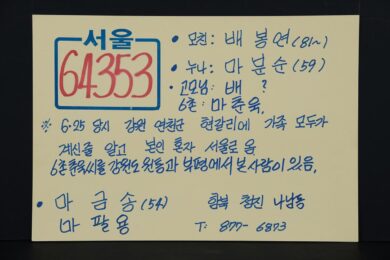 서울
64353
• 모친: 배봉연(81~)
• 누나: 마분순(59)
• 고모님: 배 ?
6촌: 마춘욱.
※ 6.25 당시 강원 연천군 현갈리에 가족 모두가
계신줄 알고 본인 혼자 서울로 옴
6촌춘욱씨를 강원도 원통과 북평에서 본사람이 있음.
• 마금송(54) 함북 청진 나남동
마팔용 T: 877-6873